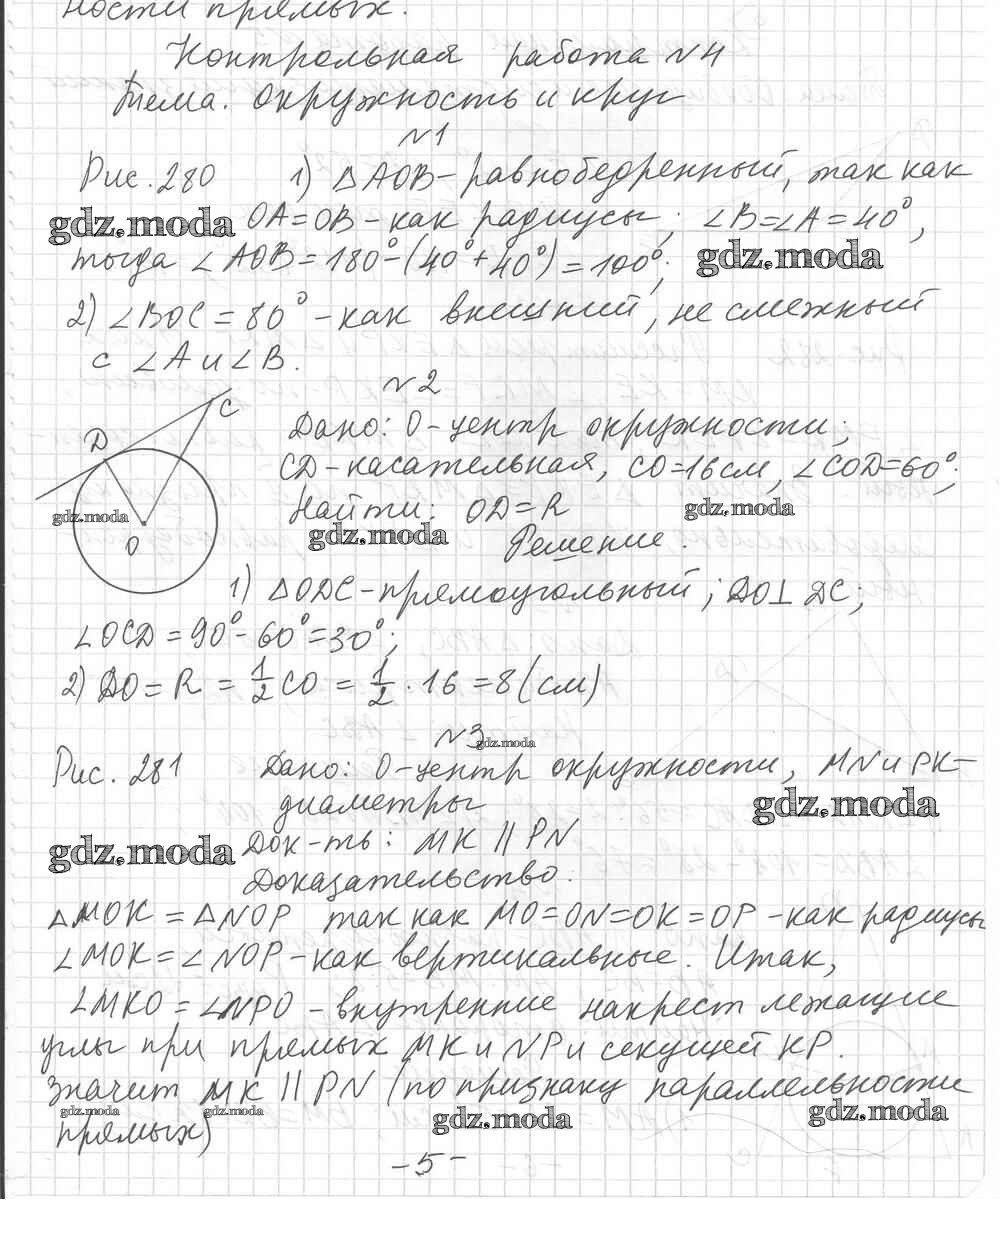 ности прямых.
Контрольная работа №4
Тема. Окружность и круг
№1
Рис. 280 1) △AOB - равнобедренный, так как
gdz.moda OA = OB - как радиусы; ∠B = ∠A = 40°,
тогда ∠AOB = 180° - (40° + 40°) = 100°; gdz.moda
2) ∠BOC = 80° - как внешний, не смежный
с ∠A и ∠B.
№2
C
D
Дано: O - центр окружности;
CD - касательная, CO = 16 см, ∠COD = 60°;
gdz.moda Найти: OD = R gdz.moda
gdz.moda
O
Решение.
1) △ODC - прямоугольный; DO ⊥ DC;
∠OCD = 90° - 60° = 30°;
2) DO = R = 1/2 CO = 1/2 · 16 = 8 (см)
№3 gdz.moda
Рис. 281 Дано: O - центр окружности, MN и PK -
диаметры gdz.moda
gdz.moda Док-ть: MK || PN
Доказательство.
△MOK = △NOP так как MO = ON = OK = OP - как радиусы
∠MOK = ∠NOP - как вертикальные. Итак,
∠MKO = ∠NPO - внутренние накрест лежащие
углы при прямых MK и NP и секущей KP.
Значит MK || PN (по признаку параллельности
gdz.moda gdz.moda gdz.moda gdz.moda
прямых)
- 5 -